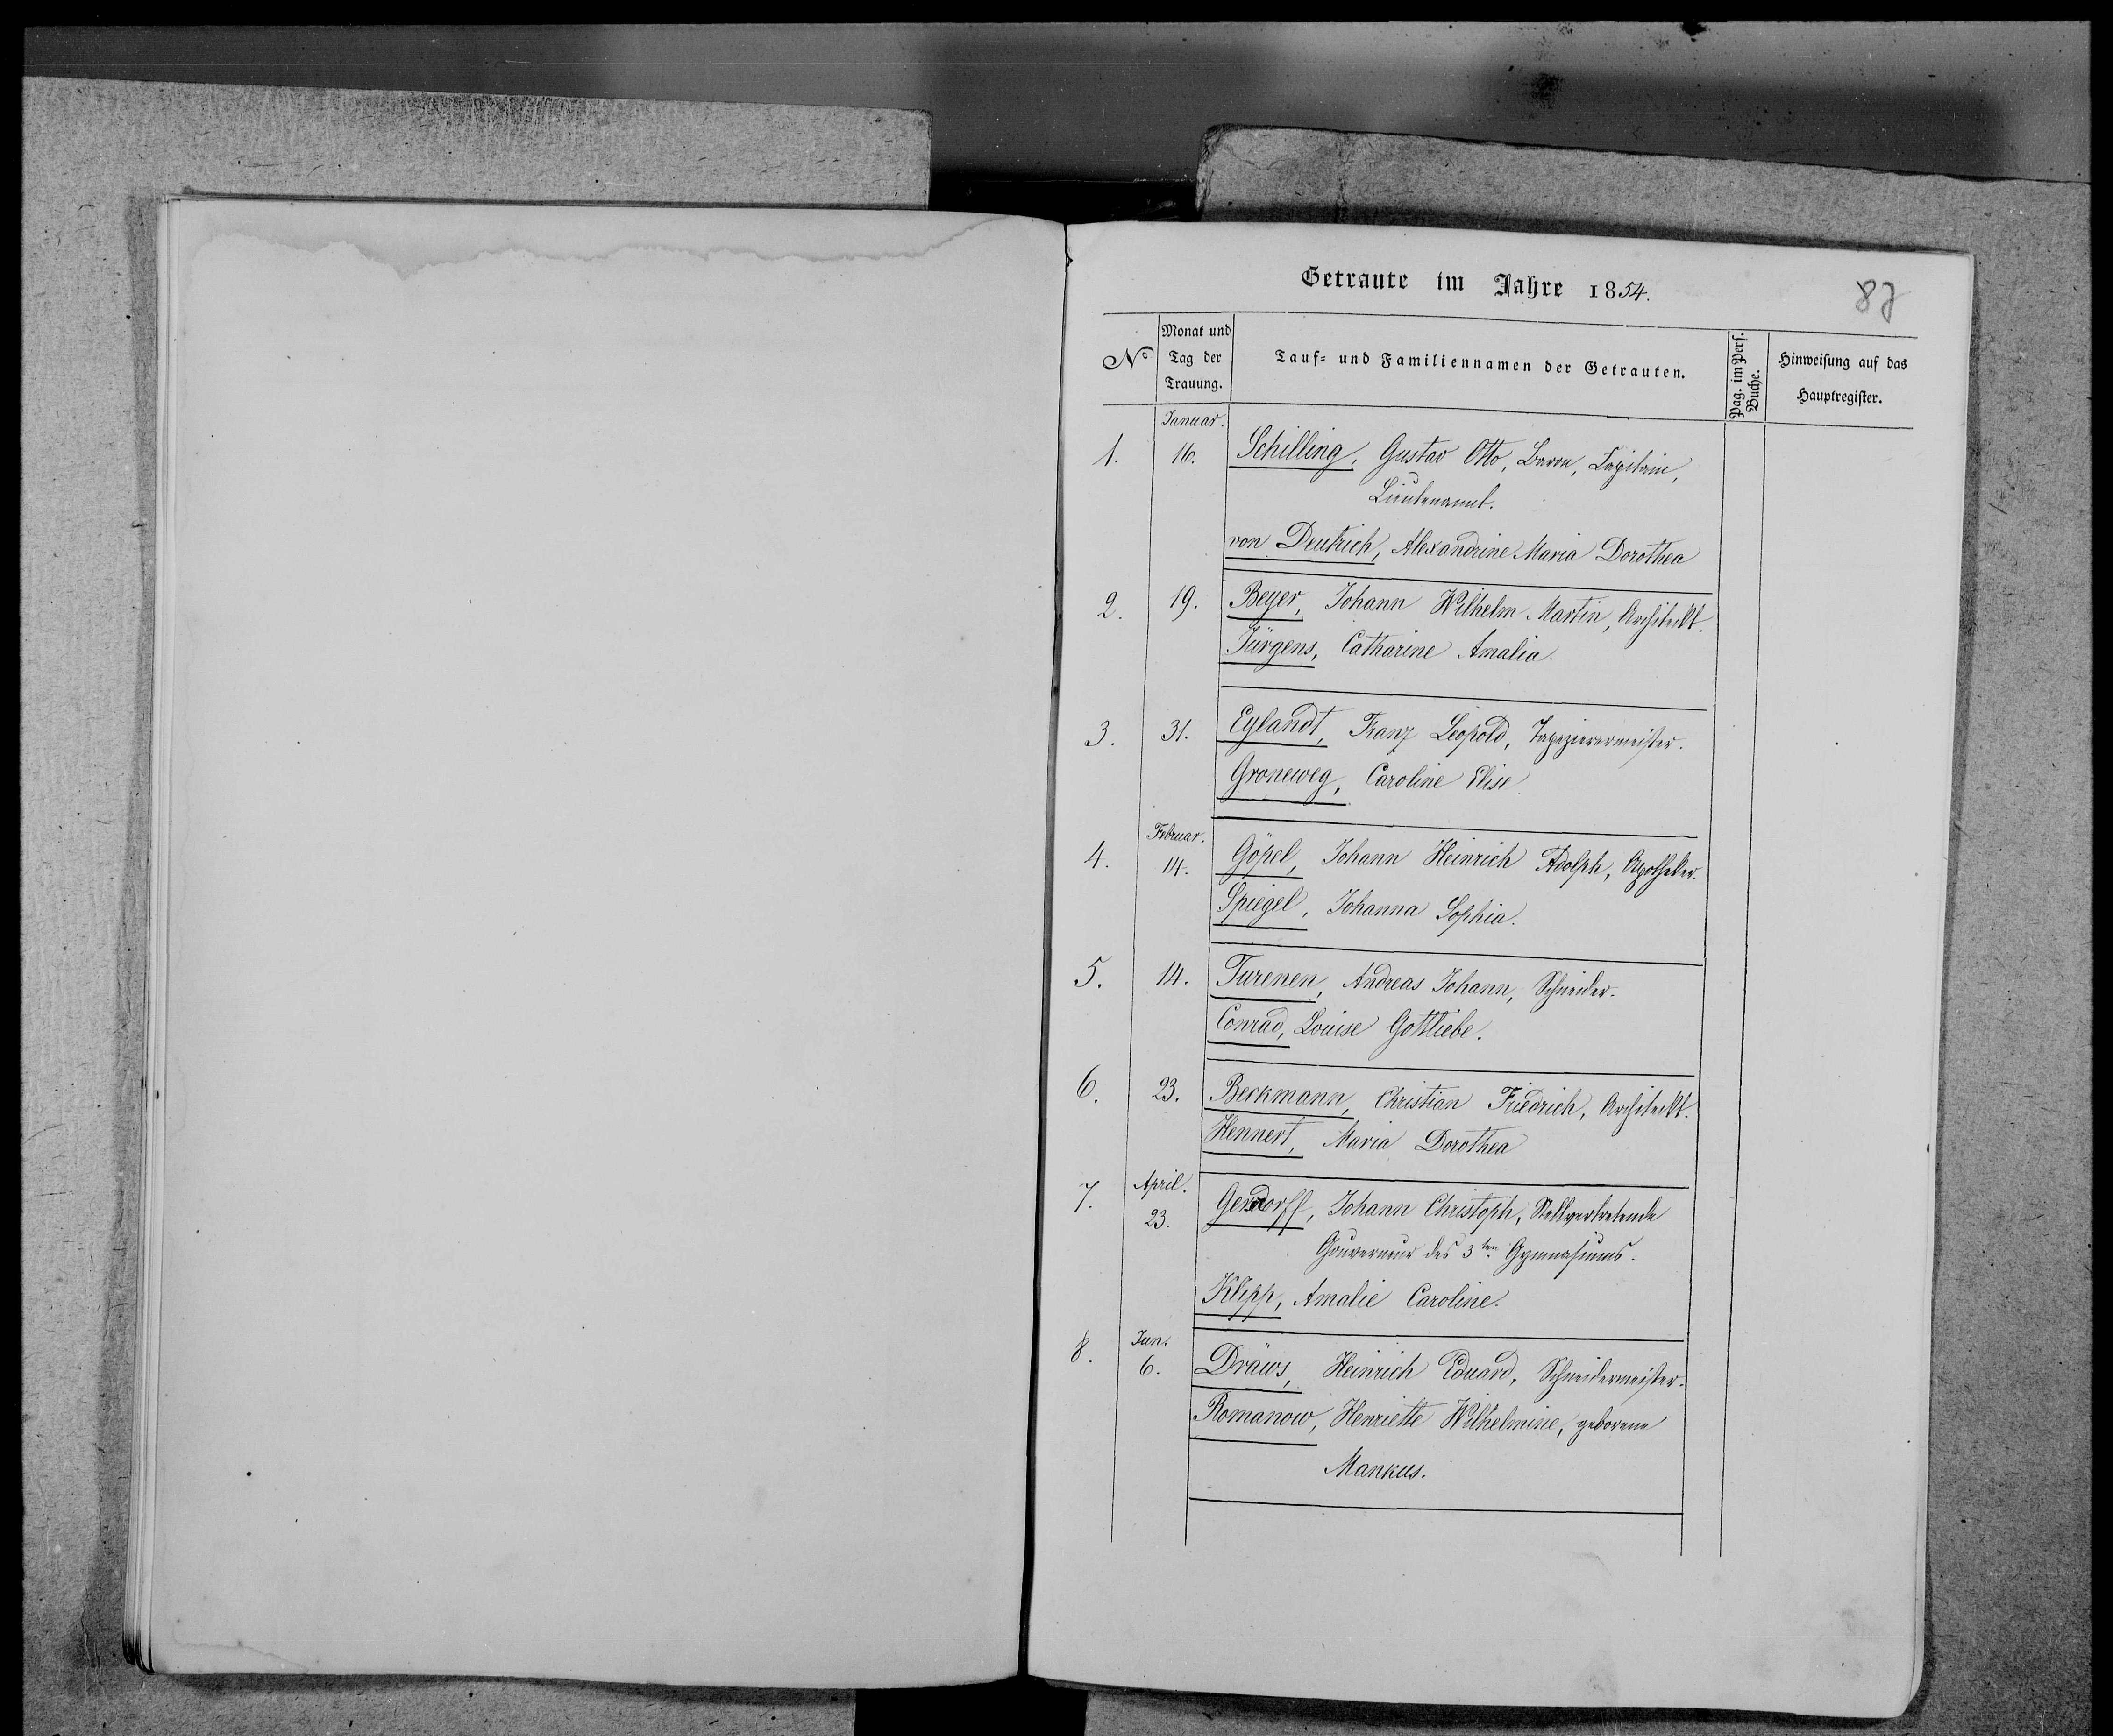 Getraute im Jahre 1854.
87
No
Monat und
Tag der
Trauung.
Tauf- und Familiennamen der Getrauten.
Pag. im Pers.
Buche.
Hinweisung auf das
Hauptregister.
Januar.
1. 16. Schilling, Gustav Otto, Baron, Capitain,
Lieutenant.
von Deutrich, Alexandrine Maria Dorothea
2. 19. Beyer, Johann Wilhelm Martin, Architekt.
Jürgens, Catharine Amalia.
3. 31. Eylandt, Franz Leopold, Tapezierermeister.
Groneweg, Caroline Elise.
Februar.
4. 14. Göpel, Johann Heinrich Adolph, Apotheker.
Spiegel, Johanna Sophia.
5. 14. Turenen, Andreas Johann, Schneider.
Conrad, Louise Gottliebe.
6. 23. Beckmann, Christian Friedrich, Architekt.
Hennert, Maria Dorothea
April.
7. 23. Johann Christoph, Stellvertretende
Gouverneur des 3ten Gymnasiums.
Klipp, Amalie Caroline.
Jun.
8. 6. Dräws, Heinrich Eduard, Schneidermeister.
Romanow, Henriette Wilhelmine, geborene
Mankus.